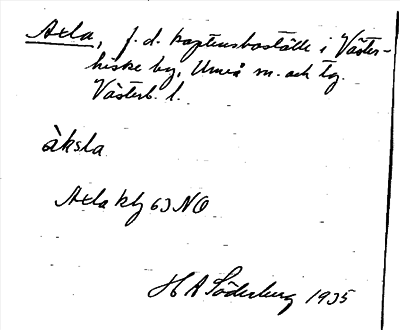 Axla, f. d. kaptensboställe i Väster-
hiske by, Umeå sn. och tg.
Västerb. l.
àksla
Axla kbl 63 NO
H A Söderberg 1935